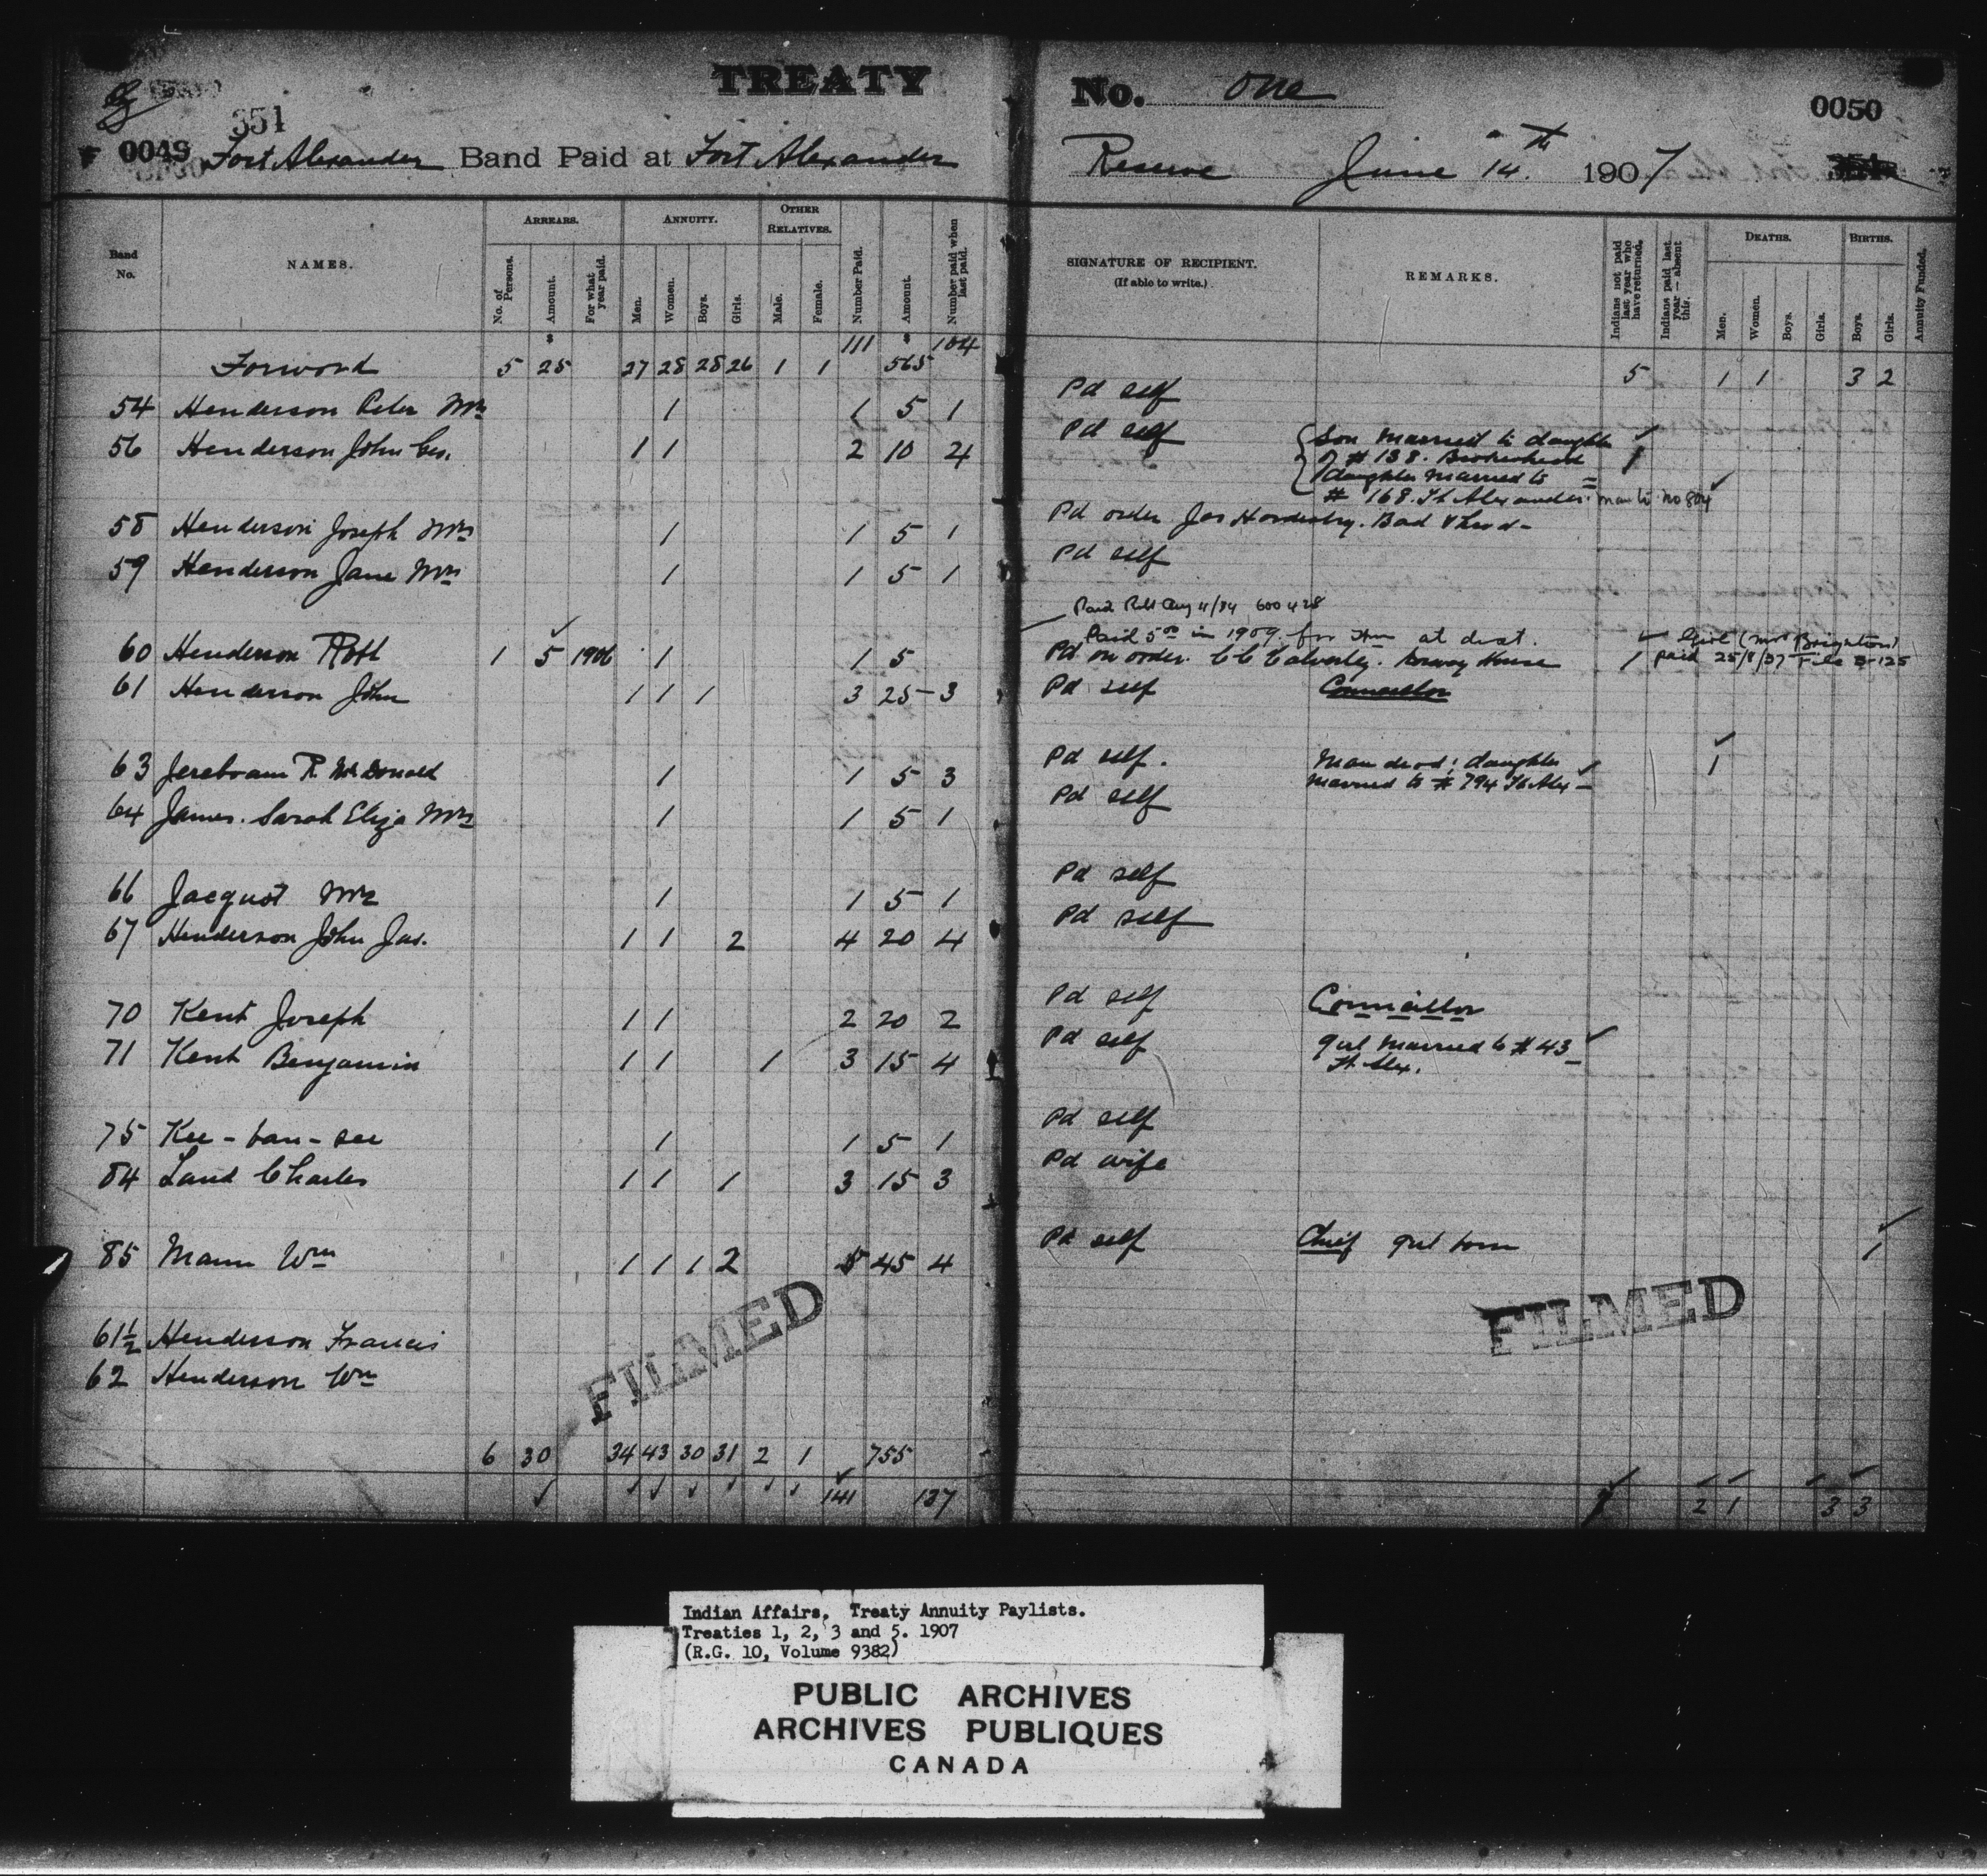 TREATY No. One
351
0049 Fort Alexander Band Paid at Fort Alexander Reserve June 14th 1907
0050
Band No. NAMES. ARREARS. No. of Persons. Amount. For what year paid. ANNUITY. Men. Women. Boys. Girls. OTHER RELATIVES. Male. Female. Number Paid. Amount. Number paid when last paid. SIGNATURE OF RECIPIENT. (If able to write.) REMARKS. Indians not paid last year who have returned. Indians paid last year — absent this. DEATHS. Men. Women. Boys. Girls. BIRTHS. Boys. Girls. Annuity Funded.
Forward 5 25 27 28 28 26 1 1 111 565 104 5 1 1 3 2
54 Henderson Peter Mrs 1 1 5 1 Pd self
56 Henderson John Geo. 1 1 2 10 4 Pd self Son married to daughter
of # 138. Brokenhead 1
daughter married to =
# 168. Ft Alexander.
58 Henderson Joseph Mrs 1 1 5 1 Pd order Jas
59 Henderson Jane Mrs 1 1 5 1 Pd self
Paid 5.00 in 1909. for at dist.
60 Henderson 1 5 1906 1 1 5 Pd on order. Norway House 1 paid 25/8/37 File
61 Henderson John 1 1 1 3 25 3 Pd self Councillor
63 Jereboam R. McDonald 1 1 5 3 Pd self. Man dead; daughter 1
married to # 794 Ft Alex
64 James. Sarah Eliza Mrs 1 1 5 1 Pd self
66 Jacquot Mrs 1 1 5 1 Pd self
67 Henderson John Jas. 1 1 2 4 20 4 Pd self
70 Kent Joseph 1 1 2 20 2 Pd self Councillor
71 Kent Benjamin 1 1 1 3 15 4 Pd self girl married to # 43
Ft. Alex.
75 Kee-tan-see 1 1 5 1 Pd self
84 Land Charles 1 1 1 3 15 3 Pd wife
85 Mann Wm 1 1 1 2 5 45 4 Pd self Chief girl born 1
61½ Henderson Francis
62 Henderson Wm
FILMED
FILMED
6 30 34 43 30 31 2 1 755
141 137 2 1 3 3
Indian Affairs. Treaty Annuity Paylists.
Treaties 1, 2, 3 and 5. 1907
(R.G. 10, Volume 9382)
PUBLIC ARCHIVES
ARCHIVES PUBLIQUES
CANADA